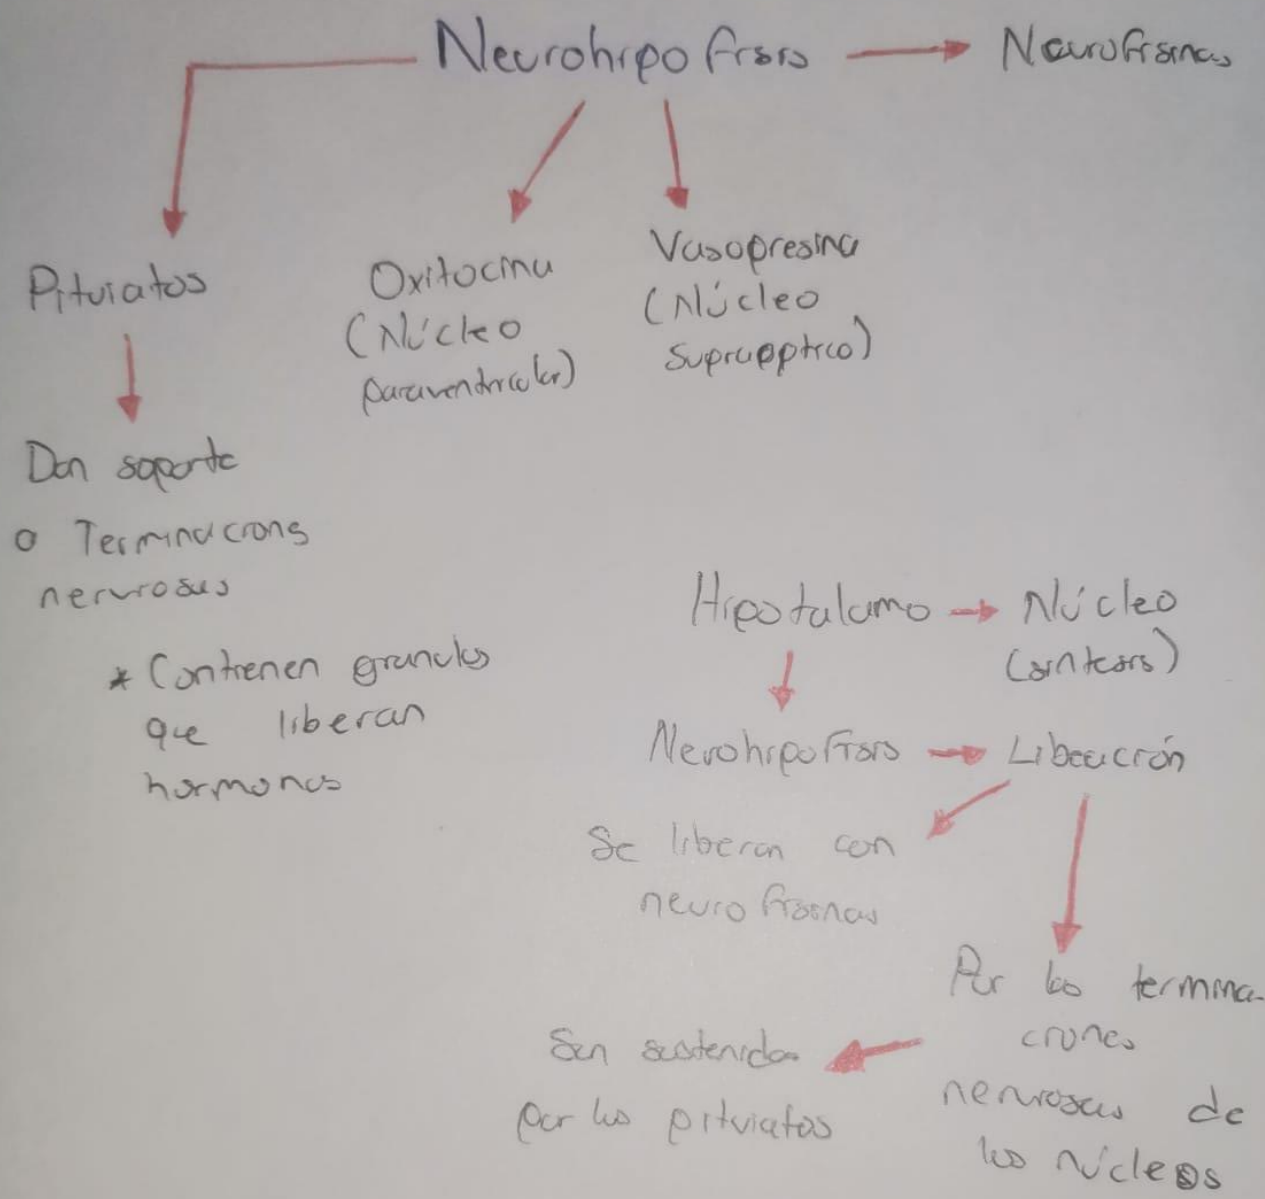 Neurohipofisis
Neurofisinas
Pituiatos
Oxitocina
(Núcleo
paraventricular)
Vasopresina
(Núcleo
supraoptico)
Dan soporte
o Terminacions
nerviosas
* Contienen granulos
que liberan
hormonas
Hipotalamo
Núcleo
(sintesis)
Nerohipofisis
Liberación
Se liberan con
neurofisinas
Por las termina-
ciones
nerviosas de
los núcleos
Son sostenidas
por los pituiatos